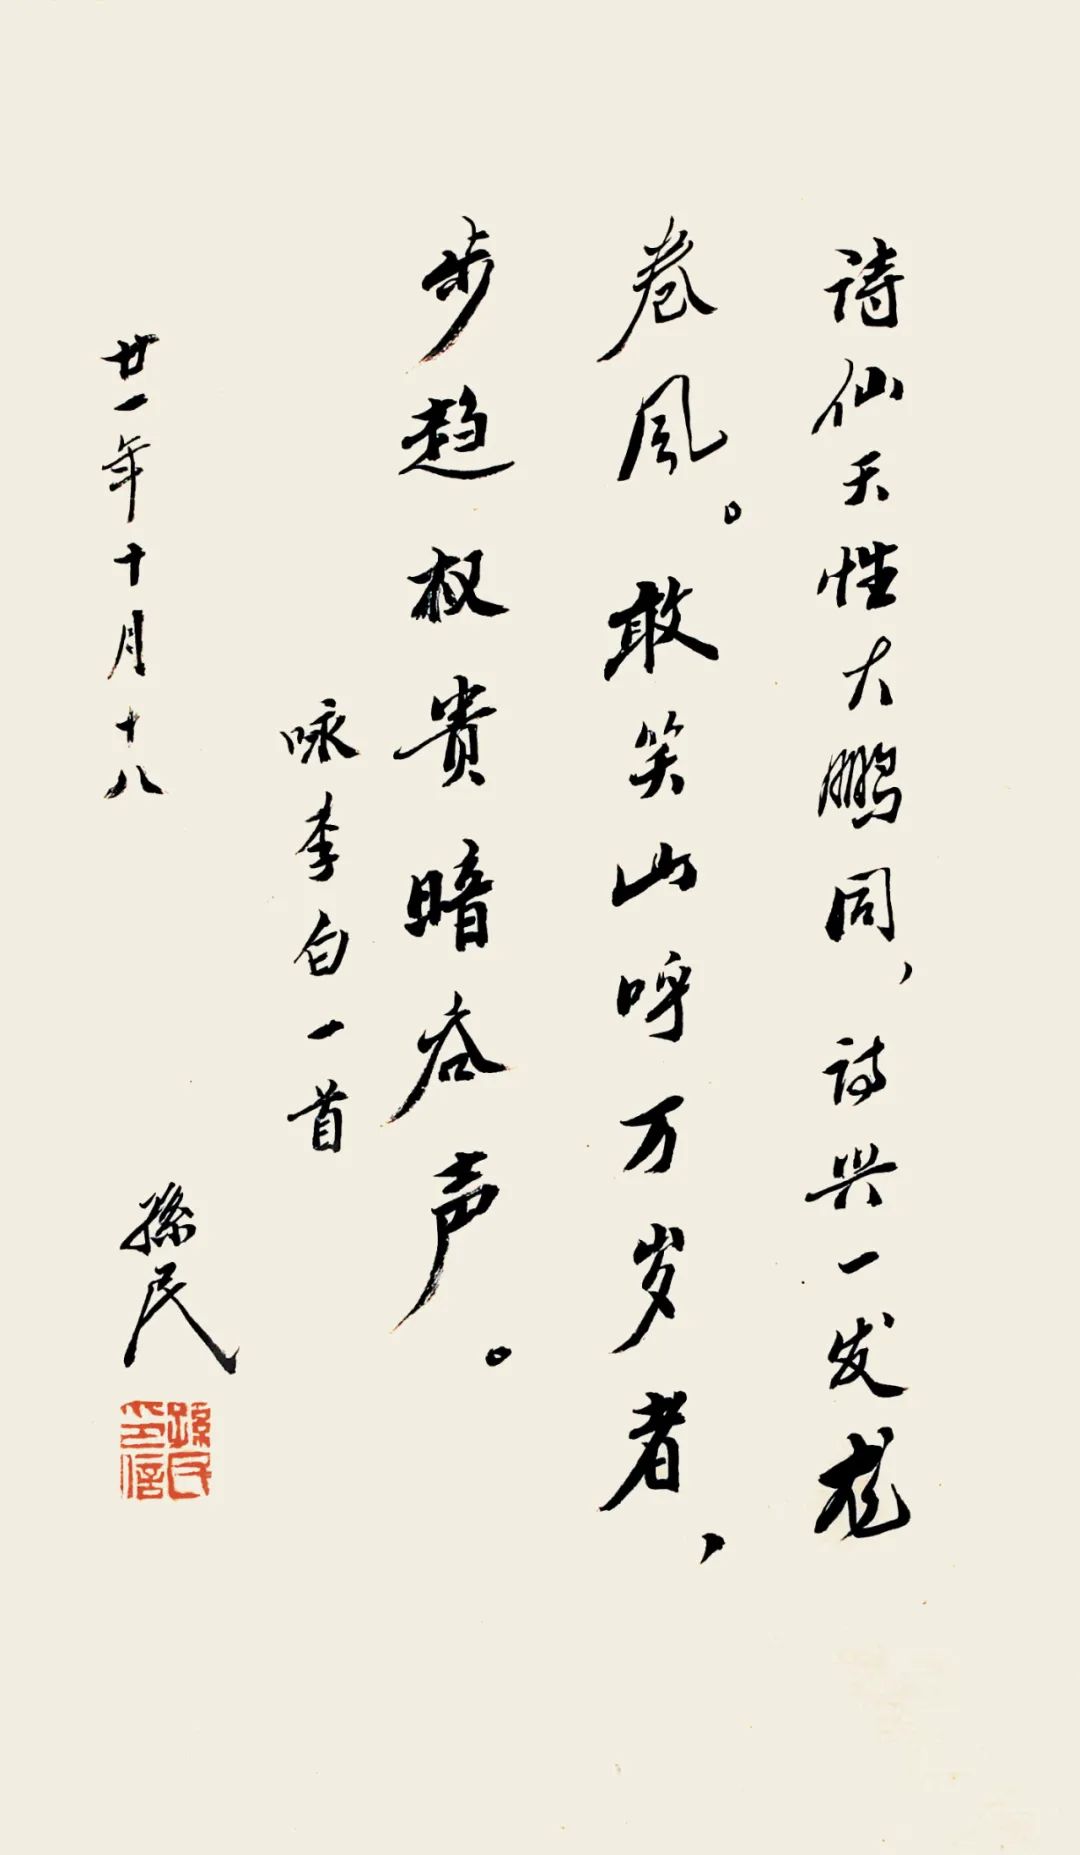 诗仙天性大鹏同，诗兴一发龙
卷风。敢笑山呼万岁者，
步趋权贵暗吞声。
咏李白一首
廿一年十月十八
孫民
孫民印信